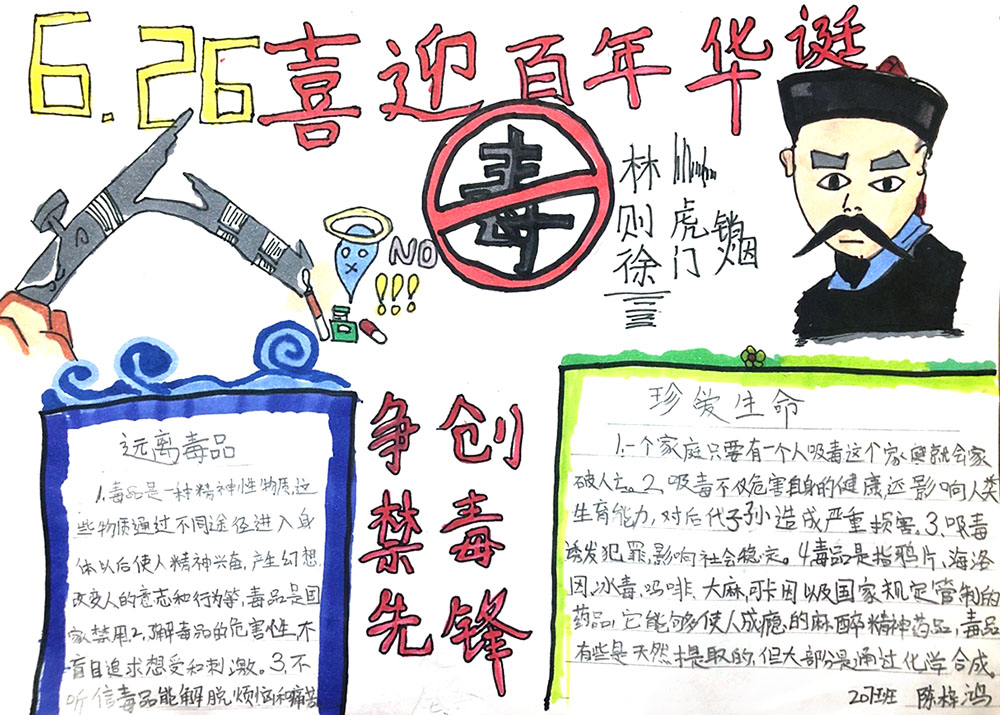 6.26 喜迎百年华诞
毒
林则徐
虎门销烟
NO
!!!
远离毒品
1.毒品是一种精神性物质,这
些物质通过不同途径进入身
体以后使人精神兴奋,产生幻想
改变人的意志和行为等,毒品是国
家禁用2,了解毒品的危害性,不
盲目追求想受和刺激。3.不
听信毒品能解脱烦恼和痛苦
争创
禁毒
先锋
珍爱生命
1.一个家庭只要有一个人吸毒这个家庭就会家
破人亡。2,吸毒不仅危害自身的健康还影响人类
生育能力,对后代子孙造成严重损害。3.吸毒
诱发犯罪,影响社会稳定。4毒品是指鸦片,海洛
因,冰毒,吗啡,大麻,可卡因以及国家规定管制的
药品,它能够使人成瘾的麻醉精神药品,毒品
有些是天然提取的,但大部分是通过化学合成。
207班 陈梓鸿